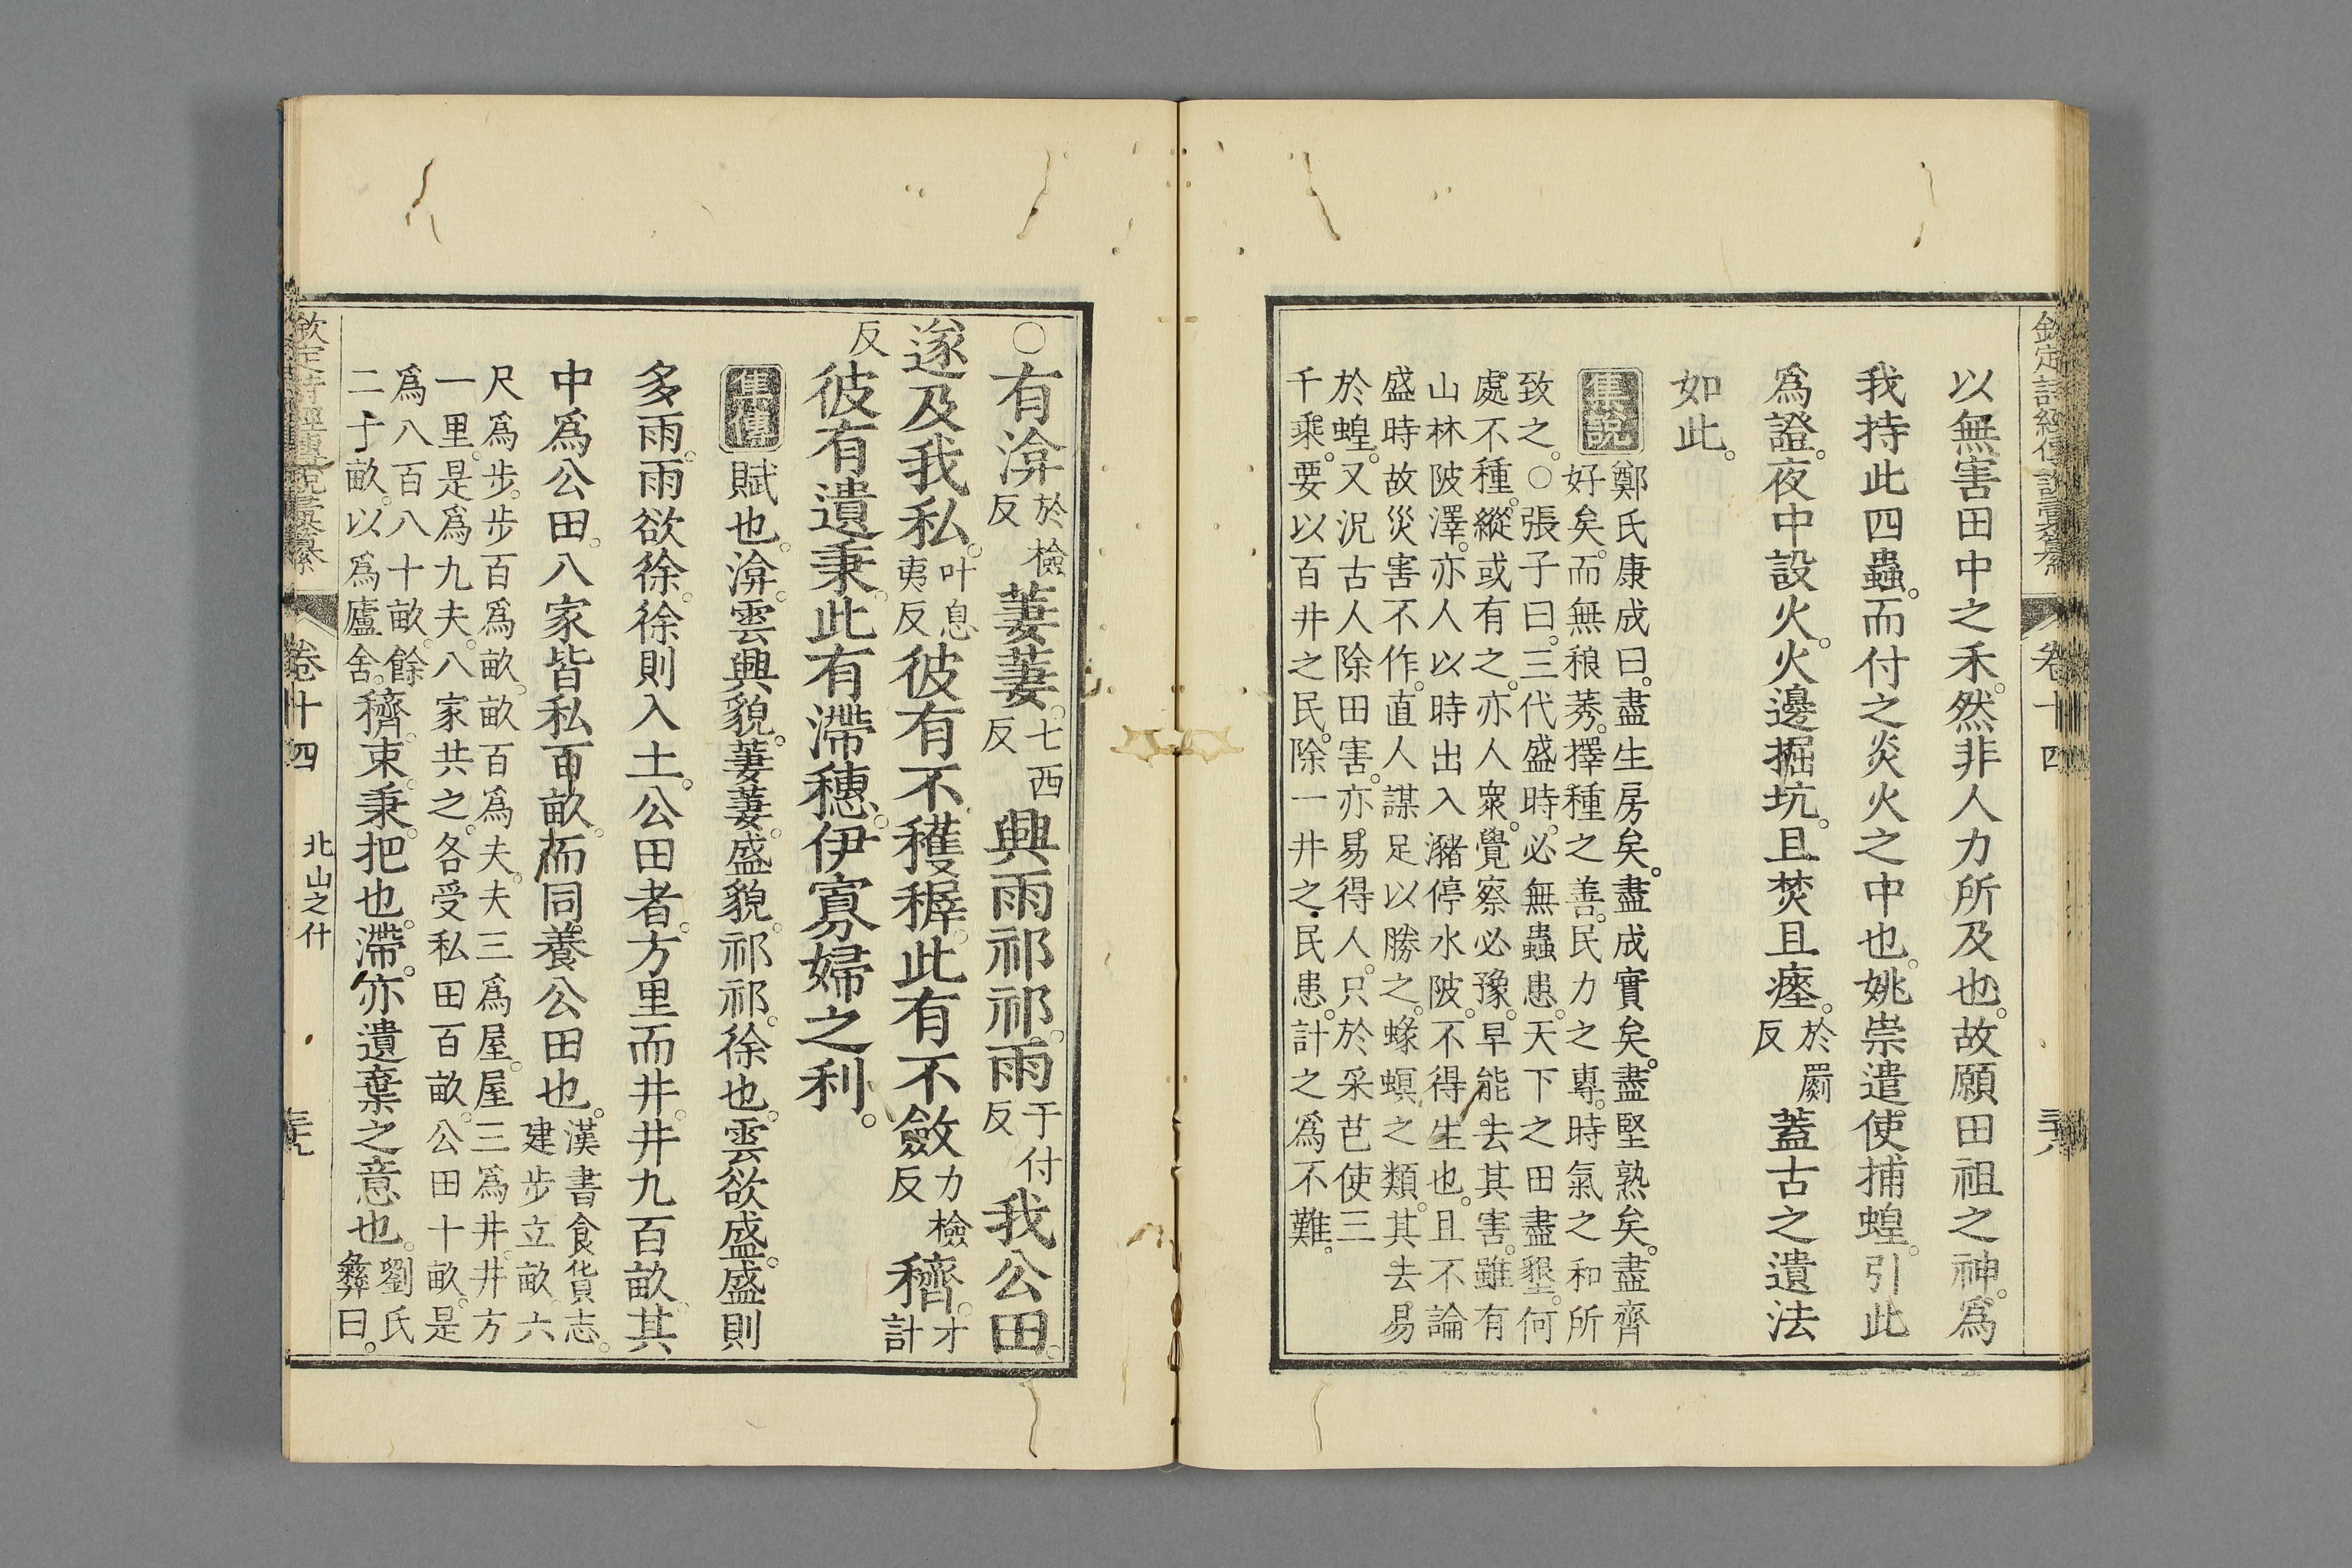 欽定詩經傳說彙纂 卷十四 三十八
以無害田中之禾。然非人力所及也。故願田祖之神。爲
我持此四蟲。而付之炎火之中也。姚崇遣使捕蝗。引此
爲證。夜中設火。火邊掘坑。且焚且瘞。於罽反蓋古之遺法
如此。
集說
鄭氏康成曰。盡生房矣。盡成實矣。盡堅熟矣。盡齊
好矣。而無稂莠。擇種之善。民力之專。時氣之和所
致之。○張子曰。三代盛時。必無蟲患。天下之田盡墾。何
處不種。縱或有之。亦人衆。覺察必豫。早能去其害。雖有
山林陂澤。亦人以時出入瀦停水陂。不得生也。且不論
盛時故災害不作。直人謀足以勝之。蝝螟之類。其去易
於蝗。又況古人除田害。亦易得人。只於采芑使三
千乘。要以百井之民。除一井之民患。計之爲不難。
○有渰於檢反萋萋。七西反興雨祁祁。雨于付反我公田。
遂及我私。叶息夷反彼有不穫穉。此有不斂力檢反穧。才計
反彼有遺秉。此有滯穗。伊寡婦之利。
集傳
賦也。渰。雲興貌。萋萋。盛貌。祁祁。徐也。雲欲盛。盛則
多雨。雨欲徐。徐則入土。公田者。方里而井。井九百畝。其
中爲公田。八家皆私百畝。而同養公田也。漢書食貨志。
建步立畝。六
尺爲步。步百爲畝。畝百爲夫。夫三爲屋。屋三爲井。井方
一里。是爲九夫。八家共之。各受私田百畝。公田十畝。是
爲八百八十畝。餘
二十畝。以爲廬舍。穧。束。秉。把也。滯。亦遺棄之意也。劉氏
彝曰。
欽定詩經傳說彙纂 卷十四 北山之什 三十九